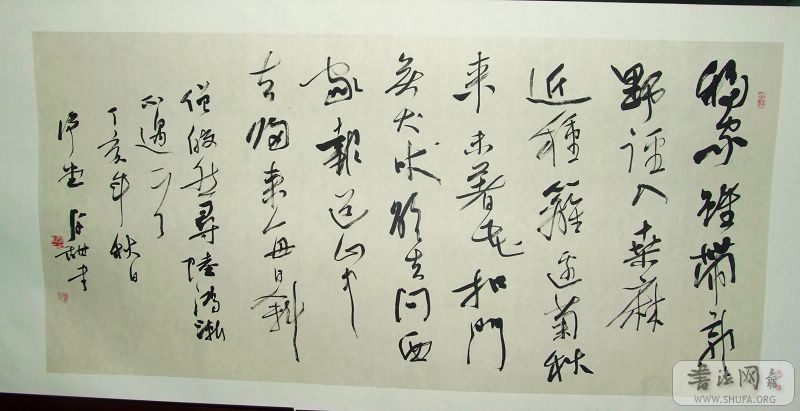 移家雖帶郭
野徑入桑麻
近種籬邊菊秋
來未著花扣門
無犬吠欲去問西
家報道山中
去歸來每日斜
僧皎然尋陸鴻漸
不遇
丁亥年秋日
書法网
WWW.SHUFA.ORG